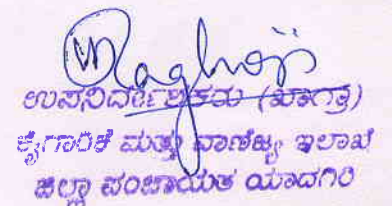 Raghoji
ಉಪನಿರ್ದೇಶಕರು (ಖಾಗ್ರಾ)
ಕೈಗಾರಿಕೆ ಮತ್ತು ವಾಣಿಜ್ಯ ಇಲಾಖೆ
ಜಿಲ್ಲಾ ಪಂಚಾಯತ ಯಾದಗಿರಿ